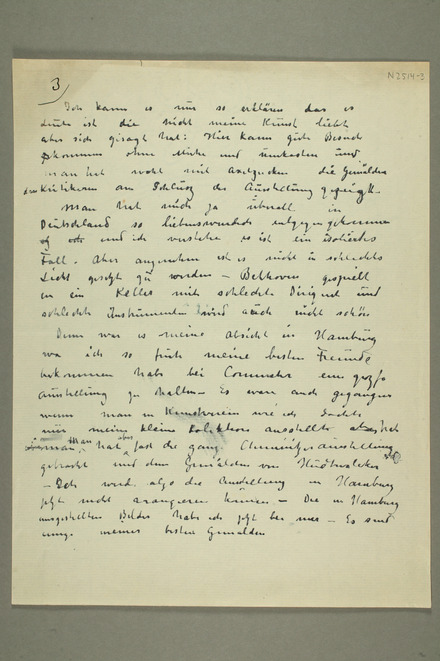 N 2514-3
3
Ich kann es nur so erklären das es
Leute ist die nicht meine Kunst liebt
aber sich gesagt hat: Hier kann gute Besuch
bekommen ohne Mühe und unkosten und
man hat wohl mit die Gemälden
den Kritikeren am Schlusz der Ausstellung gezeigt.
Man hat mich ja überall in
Deutschland so liebenswürdich entgegengekommen
und ich verstehe es ist ein isoliertes
Fall. Aber angenehm ist es nicht in schlechte
Licht gesetzt zu werden – Bethoven gespielt
in ein Keller mit schlecht Dirigent und
schlecht Instrumenten wird auch nicht schön
Denn war es meine Absicht in Hamburg
wo ich so früh meine besten Freunde
bekommen habe bei Commeter eine grosse
Ausstellung zu halten – Es wäre auch gegangen
wenn man in Kunstverein wie ich dachte
nur meine kleine Kolektion ausstellte
man hat aber fast die ganz Chemnitzerausstellung
gebracht und dem Gemälden von Hudtwalcker
– Ich werde also die Ausstellung in Hamburg
jetzt nicht arangeren können – Die in Hamburg
ausgestellten Bilder habe ich jetzt bei mir – Es sind
einige meiner besten Gemälden